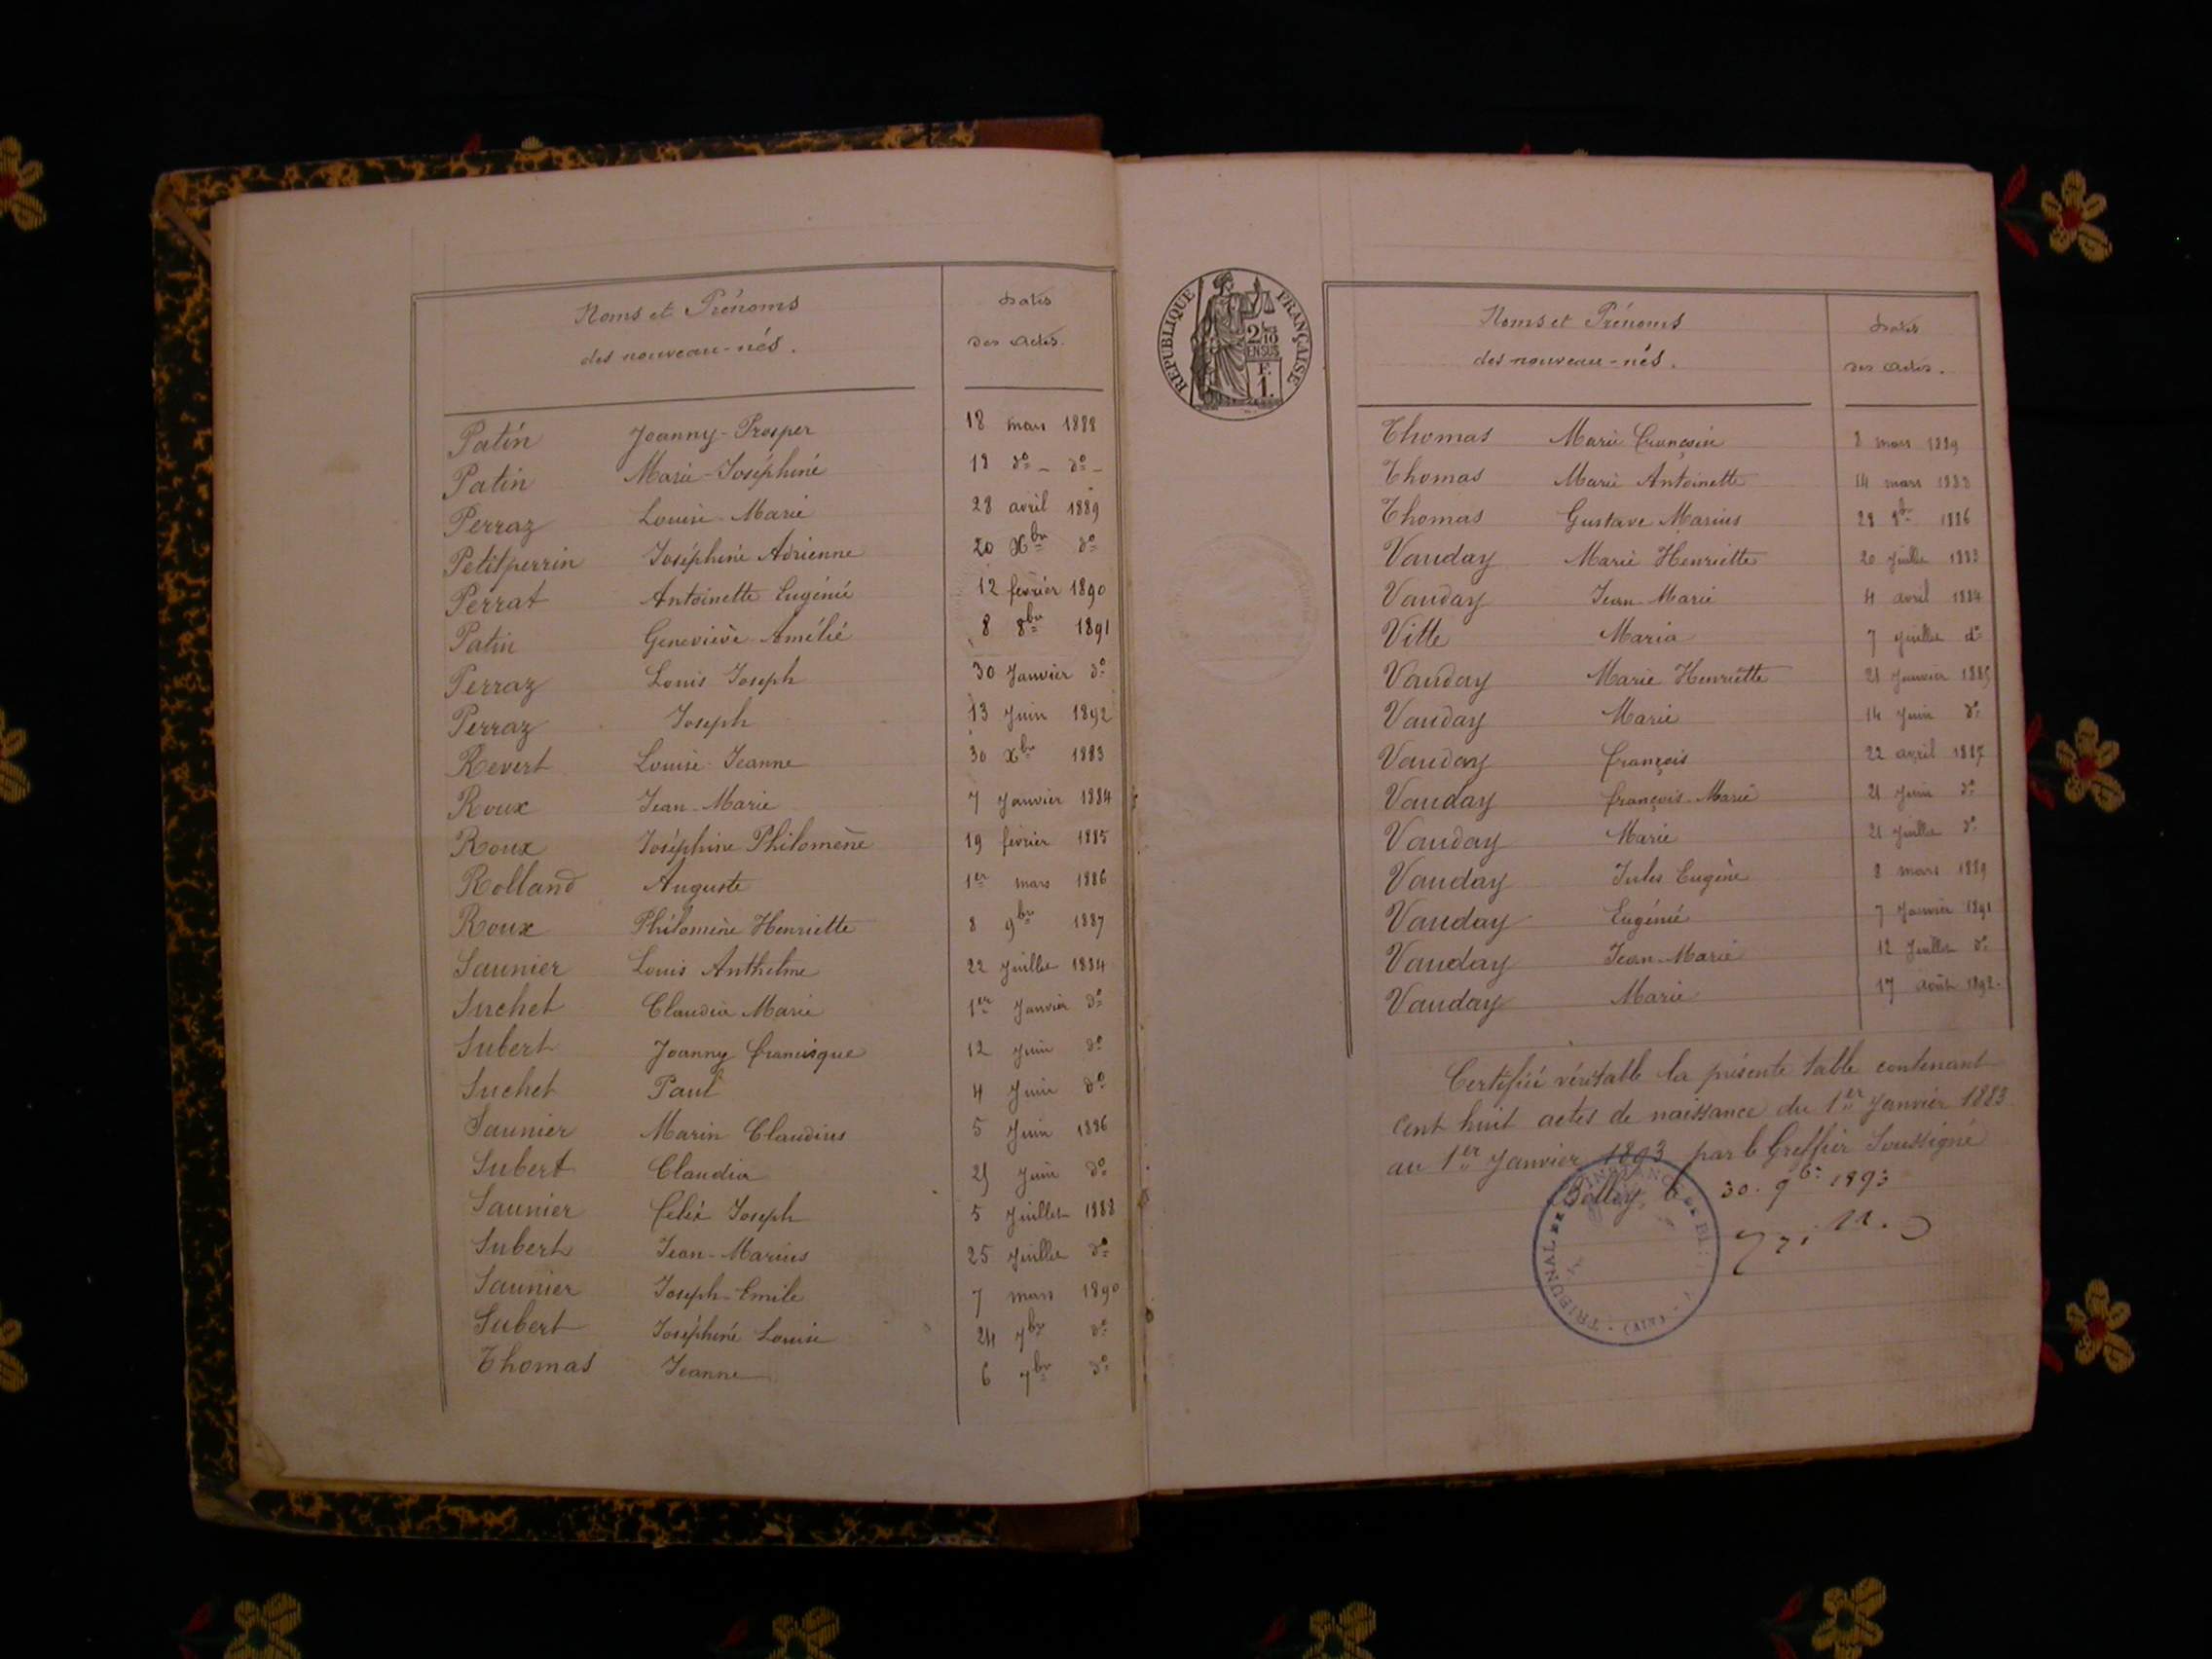 Noms et Prénoms
des nouveau-nés.
Dates
des actes.
Patin Joanny-Prosper 18 mars 1888
Patin Marie-Joséphine 18 do - do -
Perraz Louise Marie 28 avril 1889
Petitperrin Joséphine Adrienne 20 Xbre do
Perrat Antoinette Eugénie 12 février 1890
Patin Geneviève Amélie 8 8bre 1891
Perraz Louis Joseph 30 Janvier do
Perraz Joseph 13 Juin 1892
Revert Louise Jeanne 30 Xbre 1883
Roux Jean-Marie 7 Janvier 1884
Roux Joséphine Philomène 19 février 1885
Rolland Auguste 1er mars 1886
Roux Philomène Henriette 8 9bre 1887
Saunier Louis Anthelme 22 Juillet 1884
Suchet Claudia Marie 1er Janvier do
Subert Joanny francisque 12 Juin do
Suchet Paul 4 Juin do
Saunier Marin Claudius 5 Juin 1886
Subert Claudia Juin do
Saunier felix Joseph 5 Juillet 1888
Subert Jean-Marius 25 Juillet do
Saunier Joseph-Emile 7 mars 1890
Subert Joséphine Louise 24 7bre do
Thomas Jeanne 6 7bre do
REPUBLIQUE FRANÇAISE
2/10
EN SUS
F.
1.
Noms et Prénoms
des nouveau-nés.
Dates
des actes.
Thomas Marie françoise mars
Thomas Marie Antoinette 14 mars 1883
Thomas Gustave Marius 28 8bre 1886
Vauday Marie Henriette 20 Juillet 1883
Vauday Jean-Marie 4 avril 1884
Vitte Maria 7 Juillet do
Vauday Marie Henriette 21 Janvier 1885
Vauday Marie 14 Juin do
Vauday françois 22 avril 1887
Vauday françois-Marie 21 Juin do
Vauday Marie 21 Juillet do
Vauday Jules Eugène 8 mars 1889
Vauday Eugénie 7 Janvier 1891
Vauday Jean-Marie 12 Juillet do
Vauday Marie 17 août 1892
Certifiée véritable la présente table contenant
cent huit actes de naissance du 1er Janvier 1883
au 1er Janvier 1893 par le Greffier Soussigné
Belley, le 30. 9b. 1893
TRIBUNAL DE 1ère INSTANCE DE (AIN)